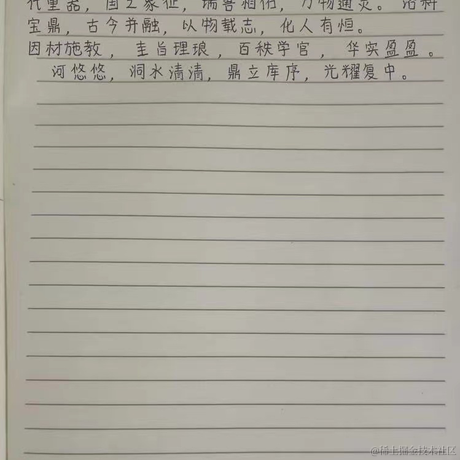 代重器，国之象征，瑞善相佑，万物通灵。洛科
宝鼎，古今并融，以物载志，化人有恒。
因材施教，圭旨理琅，百秩学官，华实盈盈。
河悠悠，洞水清清，鼎立庠序，光耀复中。
@稀土掘金技术社区